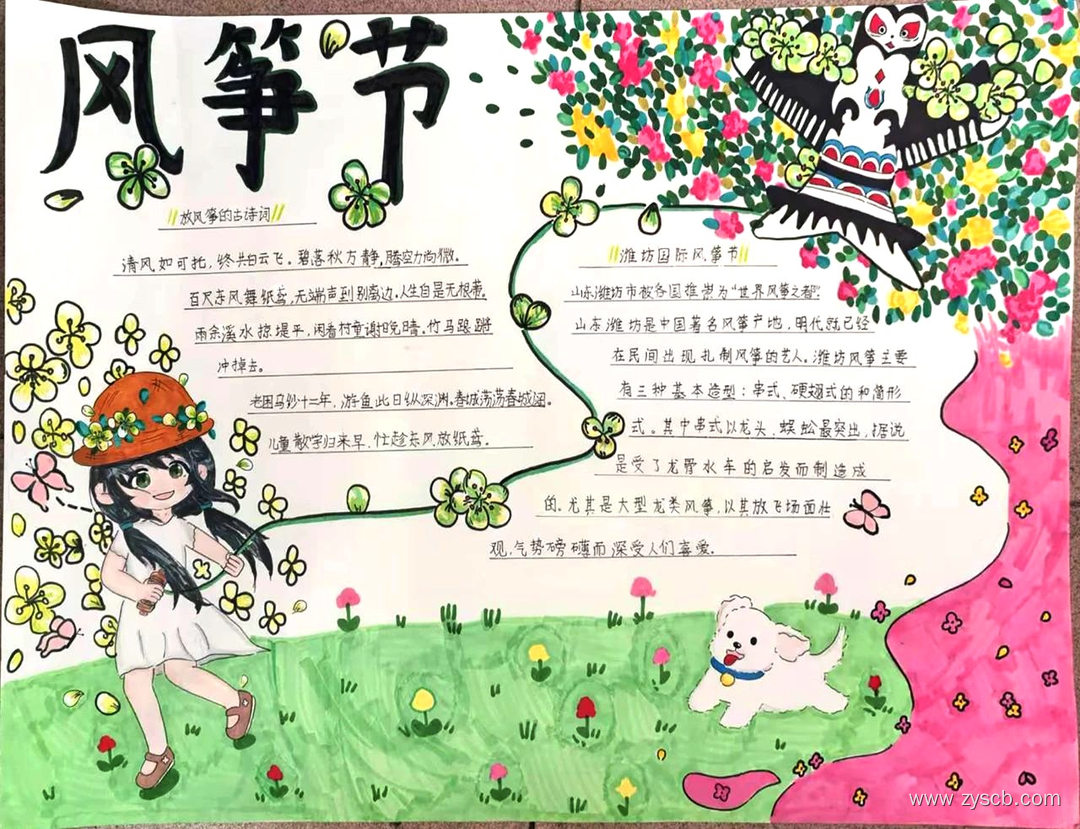 风筝节
放风筝的古诗词
清风如可托，终共白云飞。碧落秋方静，腾空力尚微。
百尺东风舞纸鸢，无端声到别离边。人生自是无根蒂，
雨余溪水掠堤平，闲看村童谢晚晴。竹马踉蹡
冲掉去。
老困乌纱十二年，游鱼此日纵深渊。春城荡荡春城阔。
儿童散学归来早，忙趁东风放纸鸢。
潍坊国际风筝节
山东潍坊市被各国推崇为“世界风筝之都”。
山东潍坊是中国著名风筝产地，明代就已经
在民间出现扎制风筝的艺人。潍坊风筝主要
有三种基本造型：串式、硬翅式的和简形
式。其中串式以龙头、蜈蚣最突出，据说
是受了龙骨水车的启发而制造成
的。尤其是大型龙类风筝，以其放飞场面壮
观，气势磅礴而深受人们喜爱。
www.zyscb.com